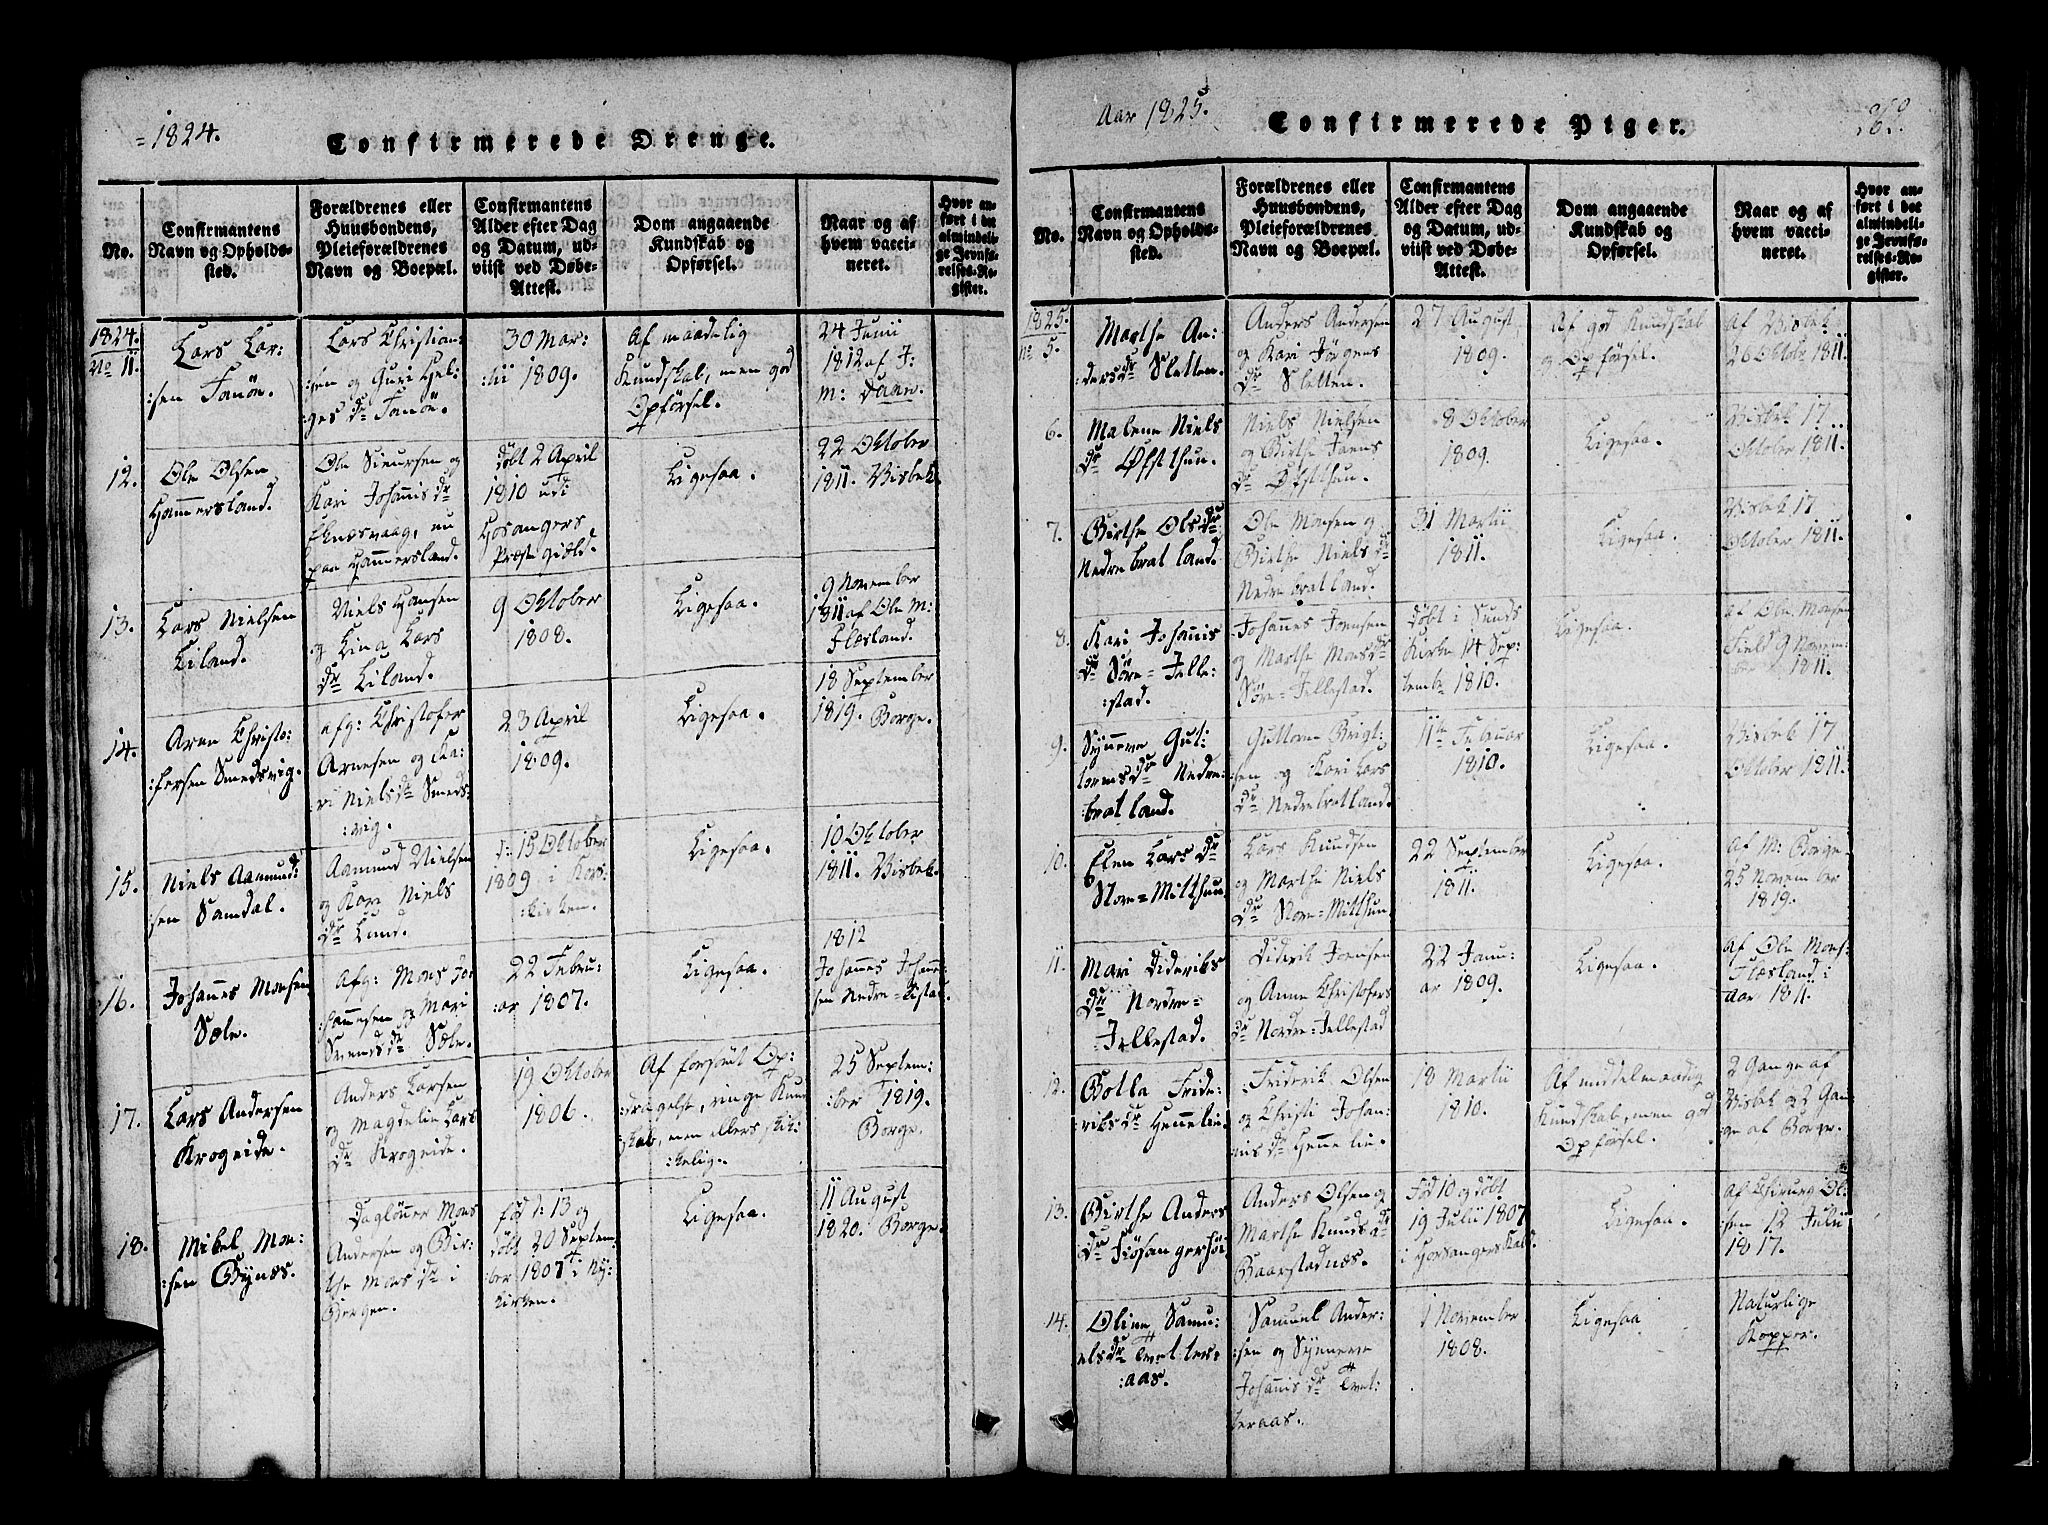 =1824.
Confirmerede Drenge.
No.
Confirmantens
Navn og Opholds-
sted.
Forældrenes eller
Huusbondens,
Pleieforældrenes
Navn og Boepæl.
Confirmantens
Alder efter Dag
og Datum, ud-
viist ved Døbe-
Attest.
Dom angaaende
Kundskab og
Opførsel.
Naar og af
hvem vacci-
neret.
Hvor an-
ført i det
almindeli-
ge Jevnfø-
relses-Re-
gister.
1824.
No 11.
Lars Lar:
:sen Fanöe.
Lars Christian:
:sen og Guri Hel:
ges dr Fanöe.
30 Mar:
:tii 1809.
Af maadelig
Kundskab, men god
Opførsel.
24 Juni
1812 af J:
m: Daae.
12.
Ole Olsen
Hammersland.
Ole Sieursen og
Kari Johannis dr
Eknæsvaag, nu
paa Hammersland.
döbt 2 April
1810 udi
Hosangers
Præstegield.
Ligesaa.
22 Oktober
1811. Bisbek.
13.
Lars Nielsen
Liland.
Niels Hansen
og Lina Lars
dr Liland.
9 Oktober
1808.
Ligesaa.
9 November
1811 af Ole M:
Flesland.
14.
Aren Christo:
:fersen Smedsvig.
afg: Christofer
Arnesen og Ka:
ri Niels dr Smeds:
:vig.
23 April
1809.
Ligesaa.
18 September
1819. Borge.
15.
Niels Aamund:
:sen Samdal.
Aamund Nielsen
og Kari Niels
dr Lund.
d: 15 Oktober
1809 i Kors:
:kirken.
Ligesaa.
10 Oktober
1811. Bisbek.
16.
Johannes Monsen
Sæle.
Afg: Mons Jo:
:hannesen og Mari
Svends dr Sæle.
22 Febru:
:ar 1807.
Ligesaa.
1812
Johannes Johanne:
sen Nedre=Titlestad.
17.
Lars Andersen
Krogeide.
Anders Larsen
og Magdeli Lars
dr Krogeide.
19 Oktober
1806.
Af forsömt Op:
:dragelse, ringe Kund
:skab, men ellers skik:
:kelig.
25 Septem:
:ber 1819.
Borge.
18.
Mikel Mon:
:sen Bynæs.
Daglönner Mons
Andersen og Bir:
the Mons dr i
Bergen.
fød d: 13 og
döbt 20 Septem:
ber 1807 i Ny:
kirken.
Ligesaa.
11 August
1820. Borge.
Aar 1825.
Confirmerede Piger.
369
No.
Confirmantens
Navn og Opholds-
sted.
Forældrenes eller
Huusbondens,
Pleieforældrenes
Navn og Boepæl.
Confirmantens
Alder efter Dag
og Datum, ud-
viist ved Døbe-
Attest.
Dom angaaende
Kundskab og
Opførsel.
Naar og af
hvem vacci-
neret.
Hvor an-
ført i det
almindeli-
ge Jevnfø-
relses-Re-
gister.
1825.
No 5.
Marthe An:
:ders dr Sletten.
Anders Andersen
og Kari Jörgens
dr Sletten.
27 August,
1809.
Af god Kundskab
og Opførsel.
Af Bisbek
26 Oktobr 1811.
6.
Malene Niels
dr Øfstthun.
Niels Nielsen
og Birthe Joens
dr Øfstthun.
8 Oktober
1809.
Ligesaa.
Bisbek 17
Oktober 1811.
7.
Birthe Ols dr
Nedrebratland.
Ole Monsen og
Birthe Niels dr
Nedrebratland.
31 Martii
1811.
Ligesaa.
Bisbek 17
Oktober 1811.
8.
Kari Johannis
dr Søre=Jelle:
:stad.
Johannes Joensen
og Marthe Mons dr
Søre=Jellestad.
Döbt i Sunds
Kirke 14 Sep:
tembr 1810.
Ligesaa.
af Ole Monsen
Field 9 Novem:
ber 1811.
9.
Synneve Gut:
torms dr Nedre:
:bratland.
Guttorm Brigt:
:sen og Kari Lars
dr Nedrebratland.
11te Februar
1810.
Ligesaa.
Bisbek 17
Oktober 1811.
10.
Elen Lars dr
Store=Mitthun
Lars Knudsen
og Marthe Niels
dr Store=Mitthun.
22 September
1811.
Ligesaa.
af M: Borge.
25 November
1819.
11.
Mari Dideriks
dr Nordre=
Jellestad.
Diderik Joensen
og Anne Christofers
dr Nordre=Jellestad
22 Janu:
ar 1809.
Ligesaa.
Af Ole Mons:
Flesland i
Aar 1811.
12.
Botla Fride:
:riks dr Hennelie.
Friderik Olsen
og Christi Johan:
nis dr Hennelie.
18 Martii
1810.
Af middelmaadig
Kundskab, men god
Opførsel.
2 Gange af
Bisbek og 2 Gan:
ge af Borge.
13.
Birthe Anders
dr Fiösangerhöi
Anders Olsen og
Marthe Knuds dr
Baarstadnæs.
Fød 10 og döbt
19 Julii 1807
i Hosangers Kald.
Ligesaa.
Af Chirurg Ol:
:sen 12 Julii
1817.
14.
Oline Samu:
els dr Tvetter:
:aas.
Samuel Ander:
:sen og Synneve
Johannis dr Tvet:
teraas.
1 November
1808.
Ligesaa
Naturlige
Kopper.